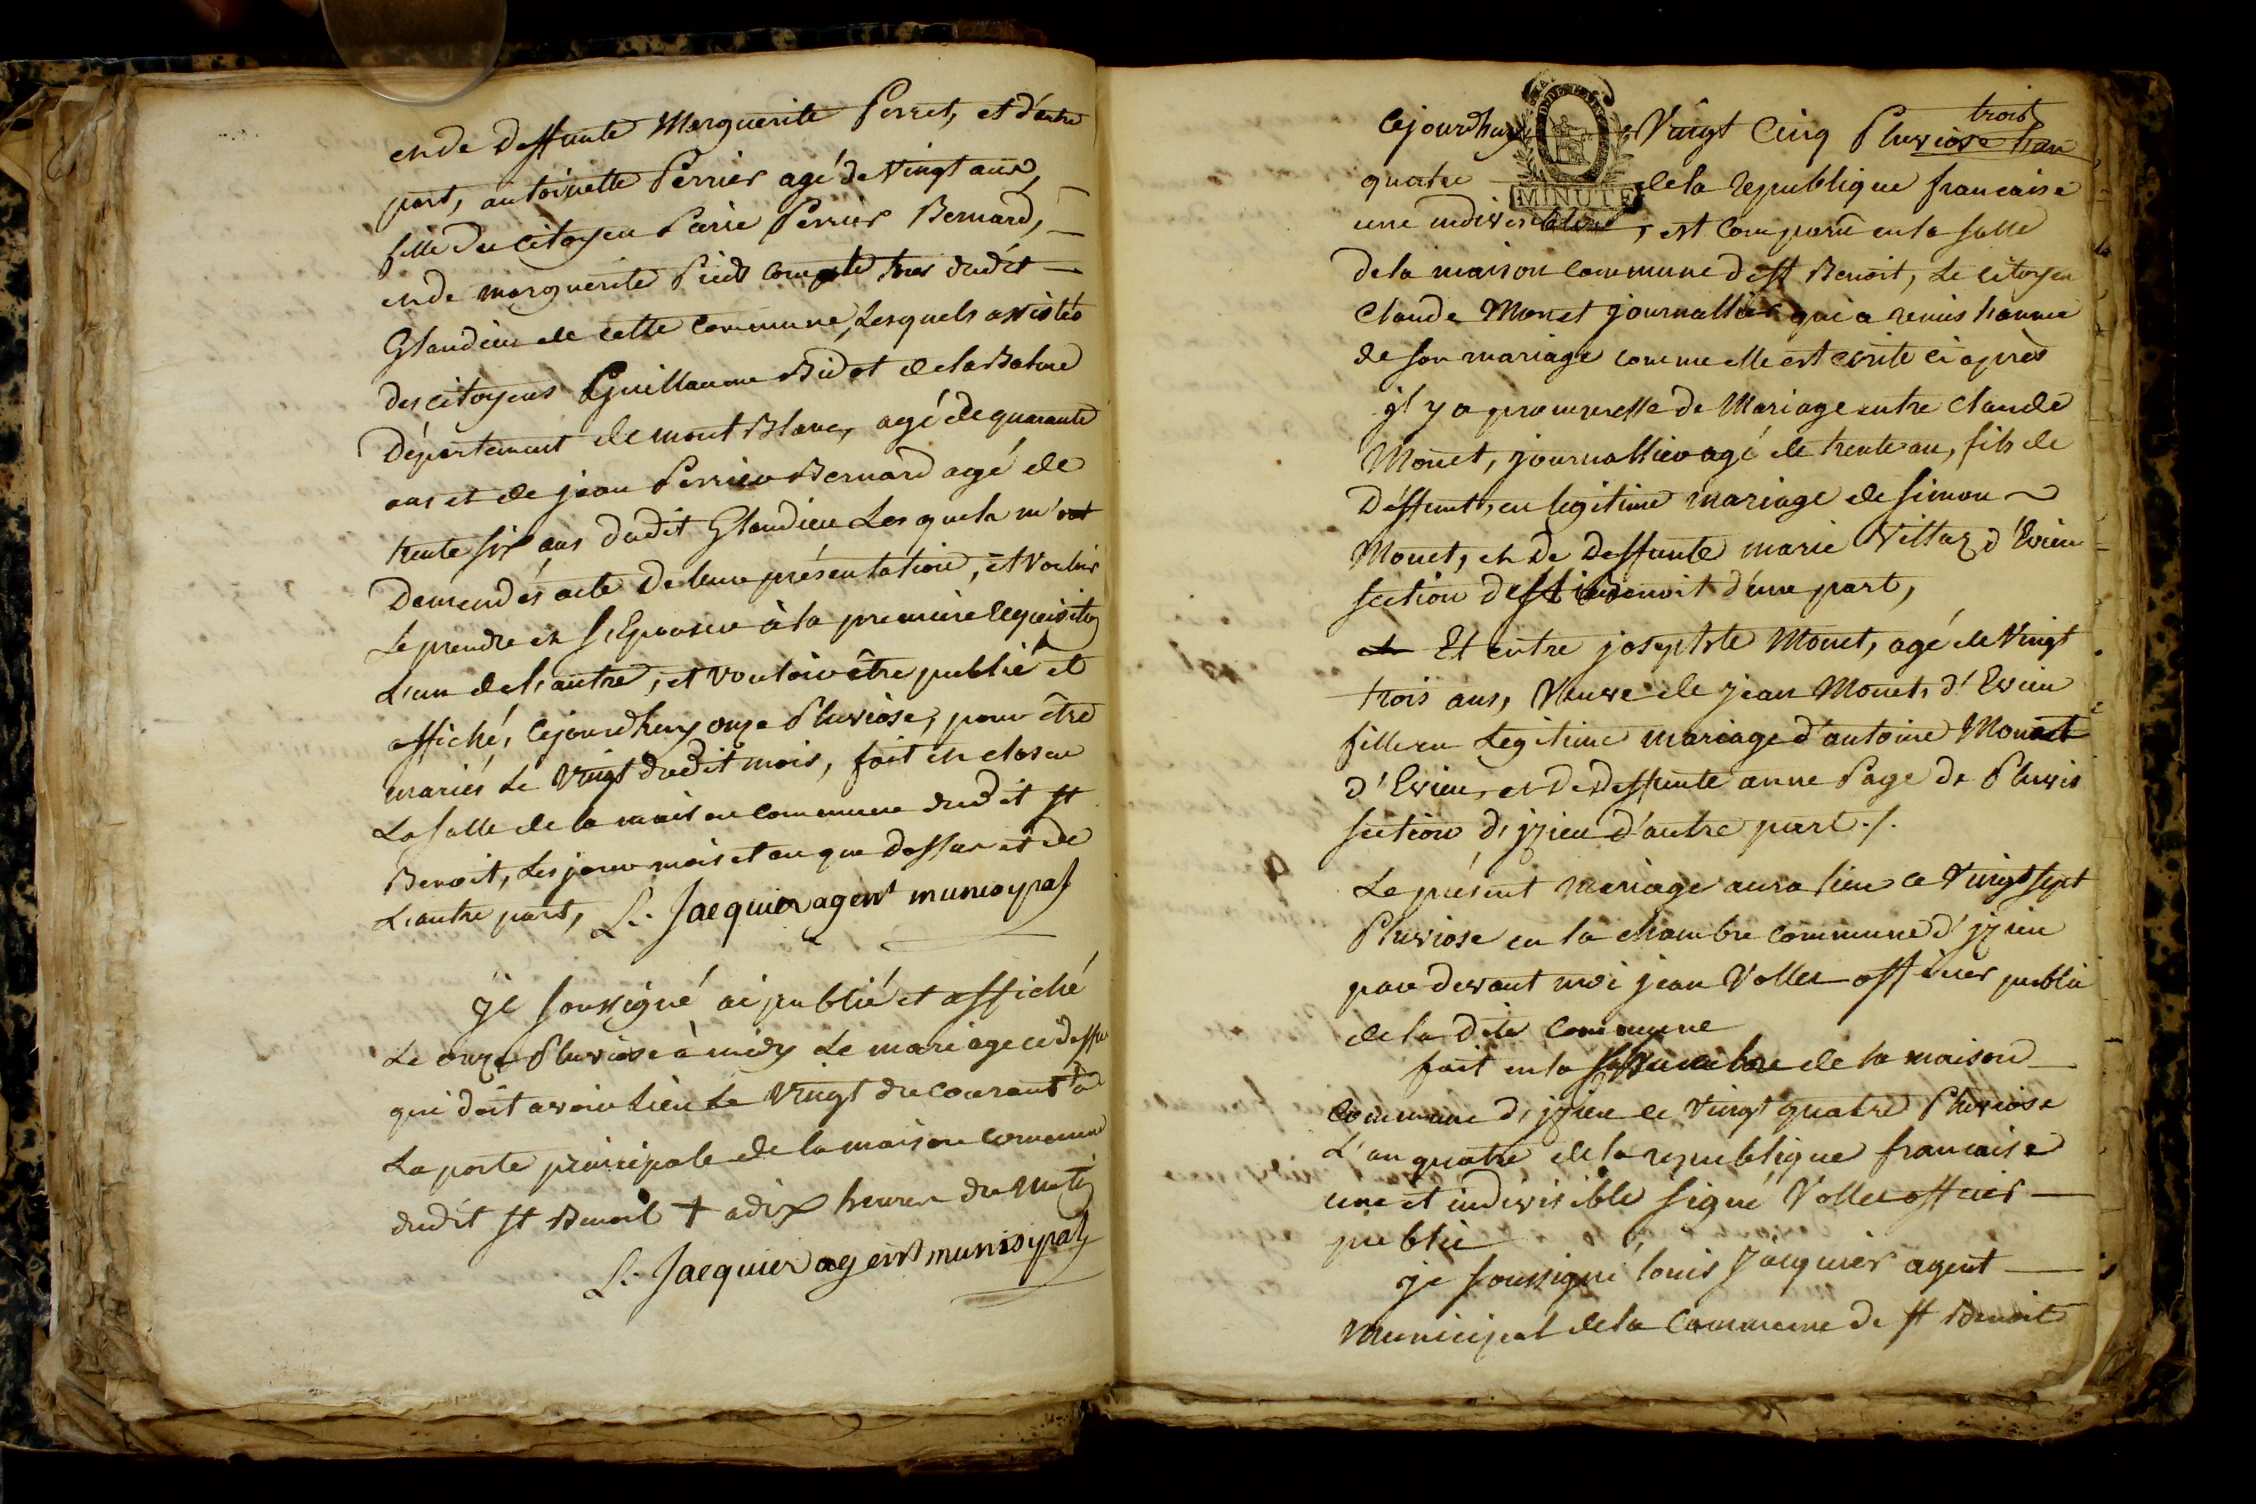 en de deffunte Marguerite Perret, et d'autre
part, antoinette Perrier agé de Vingt ans,
fille du citoyen Perrier Bernard,
en de marguerite dudit
Glandieu de cette commune, Lesquels assistés
des citoyens Guillaume Bidot de la Balme
Département de mont Blanc, agé de quarante
ans et de jean Perrier Bernard agé de
trente six ans dudit Glandieu Lesquels m'ont
Demendés acte de leur présentation, et Vouloir
Le prendre en S'Epouser à la premiere Requisitoy
L'un de l'autre, et vouloir être publié et
affiché, cejourdhuy onze Pluviose, pour être
mariés Le Vingt dudit mois, fait en clos en
La salle de la maison commune dudit St
Benoit, Les jour mois et an que dessus et de
L'autre part, L. Jacquier agent municypal
je soussigné ai publié et affiché
Le onze Pluviose à midy Le mariage ci dessus
qui doit avoir Lieu Le Vingt du courant à
La porte principale de la maison commune
dudit St Benoit + a dix heures du matin
L. Jacquier agent municypal
cejourdhuy Vingt Cinq Pluviose trois
quatre de la republique francaise
MINUTE
une indivisible, est comparu en la salle
de la maison commune de St Benoit, Le citoyen
Claude Monet journallier qui a remis
de son mariage comme elle est ecrite ci après
jl y a prommesse de Mariage entre Claude
Monet, journallier agé de trente an, fils de
Déffunt, en legitime mariage de Simon
Monet, en de Deffunte marie Villaz d'Evieu
section de St Benoit d'une part,
Et entre josephte Monet, agé de Vingt
trois ans, Veuve de jean Monet, d'Evieu
fille en Legitime mariage d'antoine Monet
d'Evieu, en de deffunte anne Page de Pluvis
section d'jzieu d'autre part ./.
Le présent mariage aura lieu ce Vingt sept
Pluviose en la chambre commune d'jzieu
par devant moi jean Vollet officier public
de la dite commune
fait en la de la maison
commune d'jzieu ce Vingt quatre Pluviose
L'an quatre de la republique francaise
une et indivisible signé Vollet officier
public
je soussigné louis Jacquier agent
Municipal de la Commune de St Benoit